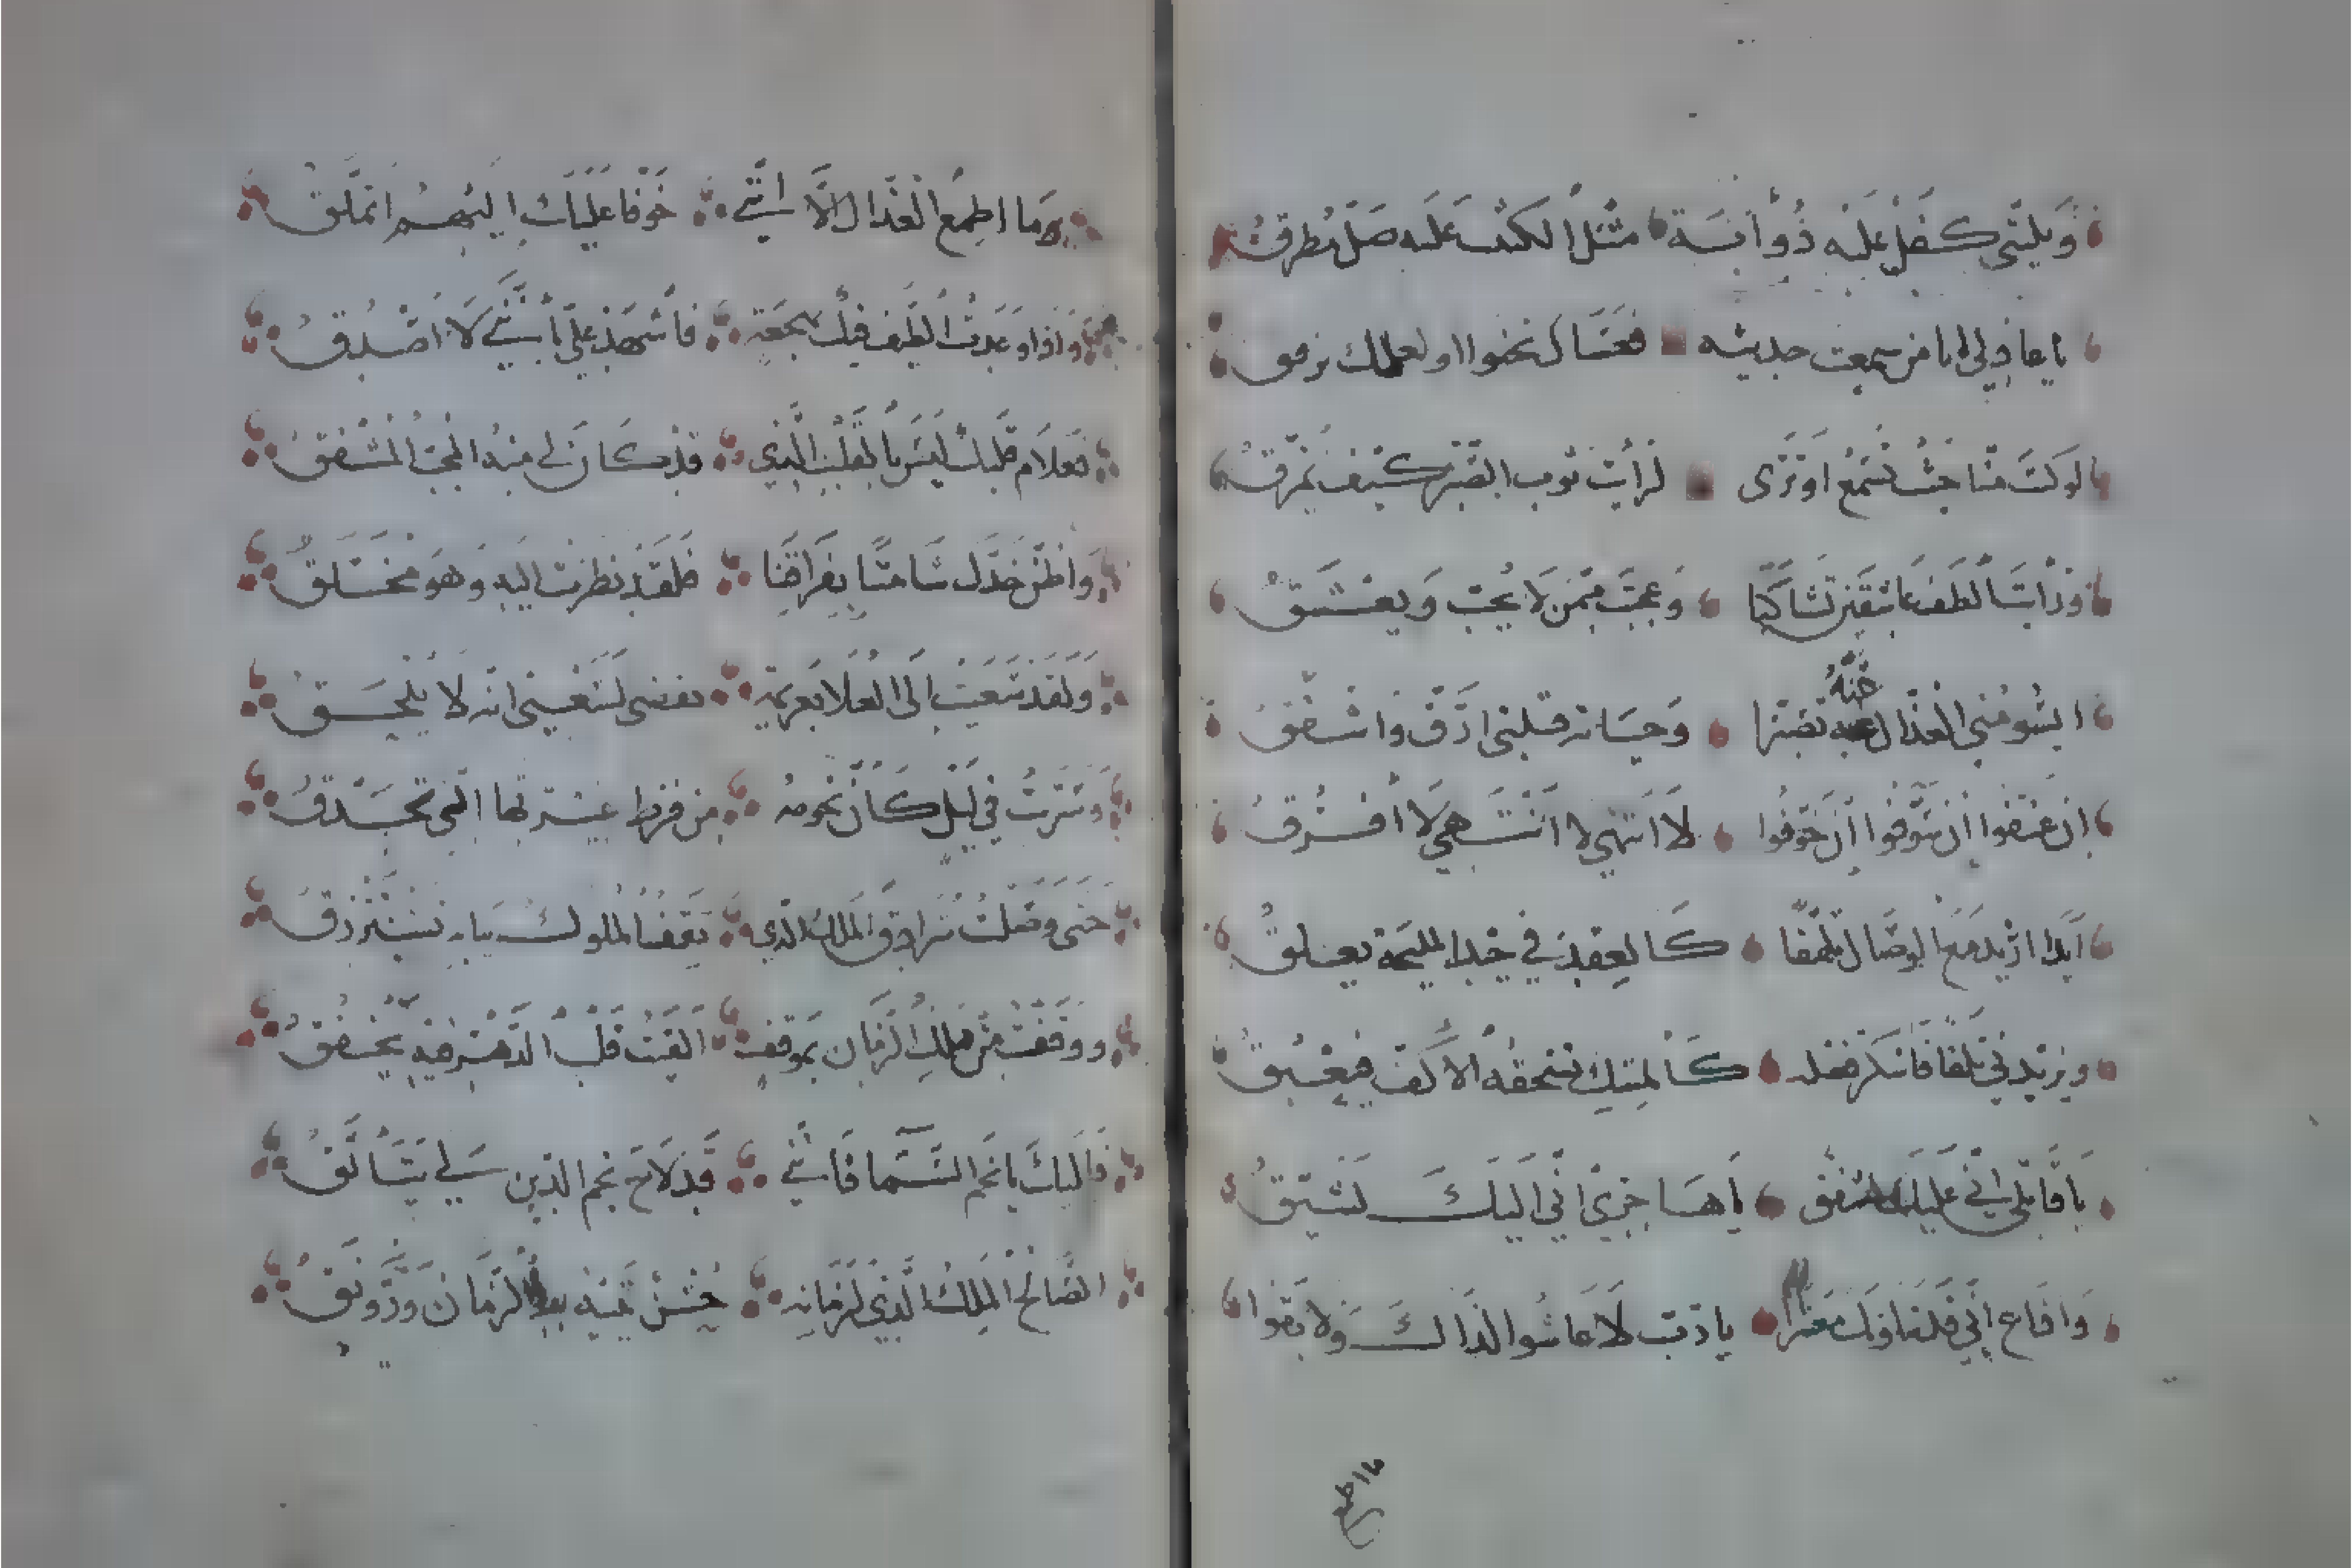 وبليتي كفل عليه ذؤابة مثل الكثيب عليه صل مطرق
يا عاذلي انا من سمعت حديثه فعساك تحنوا او لعلك ترفق
لو كنت منا حيث تسمع او ترى لرأيت ثوب الصبر كيف يمزق
ورأيت ألطف عاشقين تشاكيا وعجبت ممن لا يحب ويعشق
ايسومني العذال عنه تصبرا وحياته قلبي ارق واشفق
ان عنفوا ان سوفوا ان خوفوا لا انتهي لا انثني لا أفرق
أبدا ازيد مع الوصال تلهفا كالعقد في جيد المليحة يعلق
ويزيدني تلفا فاشكر فعله كالمسك تسحقه الاكف فيعبق
يا قاتلي اني عليك لمشفق يا هاجري اني اليك لشيق
واذاع اني قد سلوتك معشر يا رب لا عاشوا لذاك ولا بقوا
ما اطمع
ما اطمع العذال الا انني خوفا عليك اليهم اتملق
واذا وعدت الطيف فيك بهجعة فاشهد علي بأنني لا اصدق
فعلام قلبك ليس بالقلب الذي قد كان لي منه المحب المشفق
واظن خدك شامتا بفراقنا فلقد نظرت اليه وهو مخلق
ولقد سعيت الى العلا بعزيمة تقضي لسعيي انه لا يلحق
وسريت في ليل كأن نجومه من فرط غيرتها الي تحدق
حتى وصلت سرادق الملك الذي تقف الملوك ببابه تسترزق
ووقفت من ملك الزمان بموقف الفيت قلب الدهر فيه يخفق
فاليك يا نجم السما فانني قد لاح نجم الدين لي يتألق
الصالح الملك الذي لزمانه حسن يتيه به الزمان ورونق